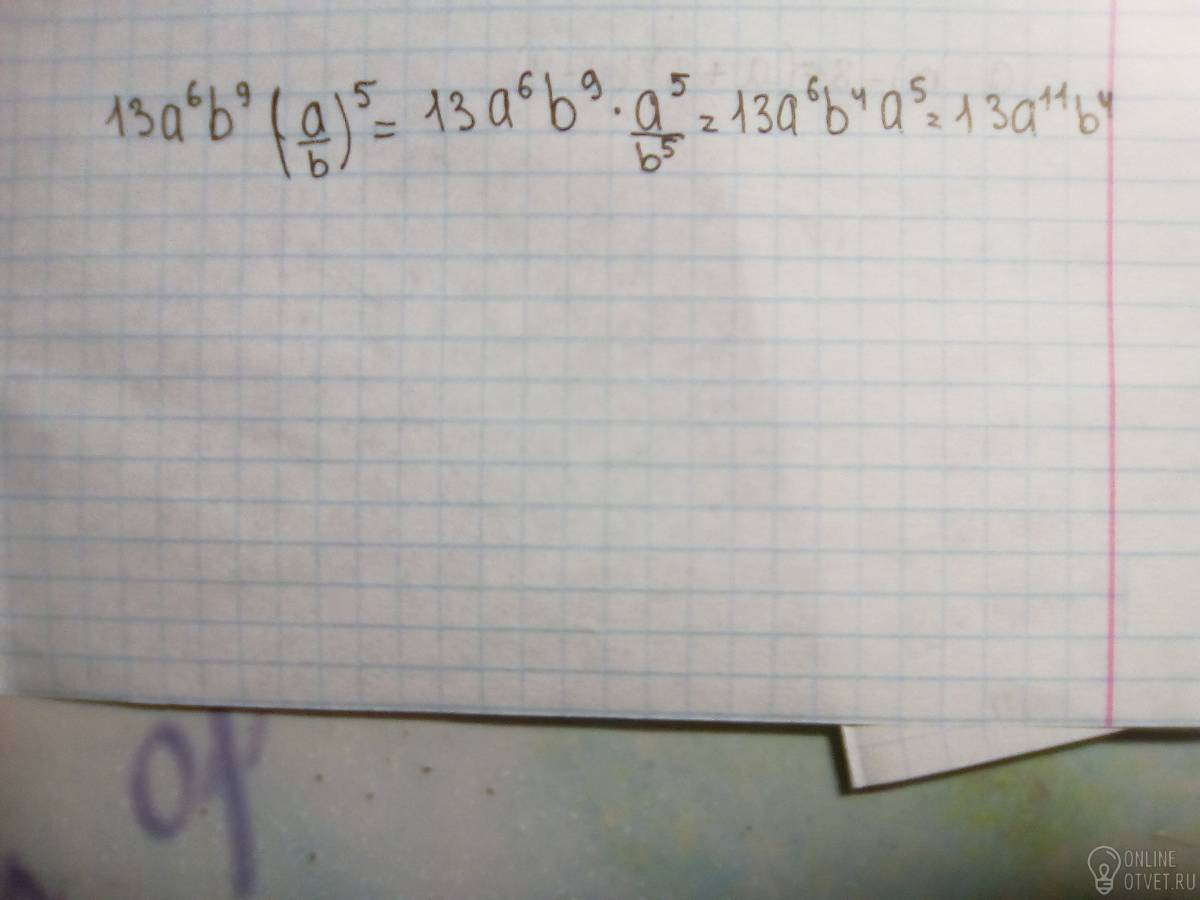 13a⁶b⁹(a/b)⁵ = 13a⁶b⁹·a⁵/b⁵ = 13a⁶b⁴a⁵ = 13a¹¹b⁴
ONLINE
OTVET.RU